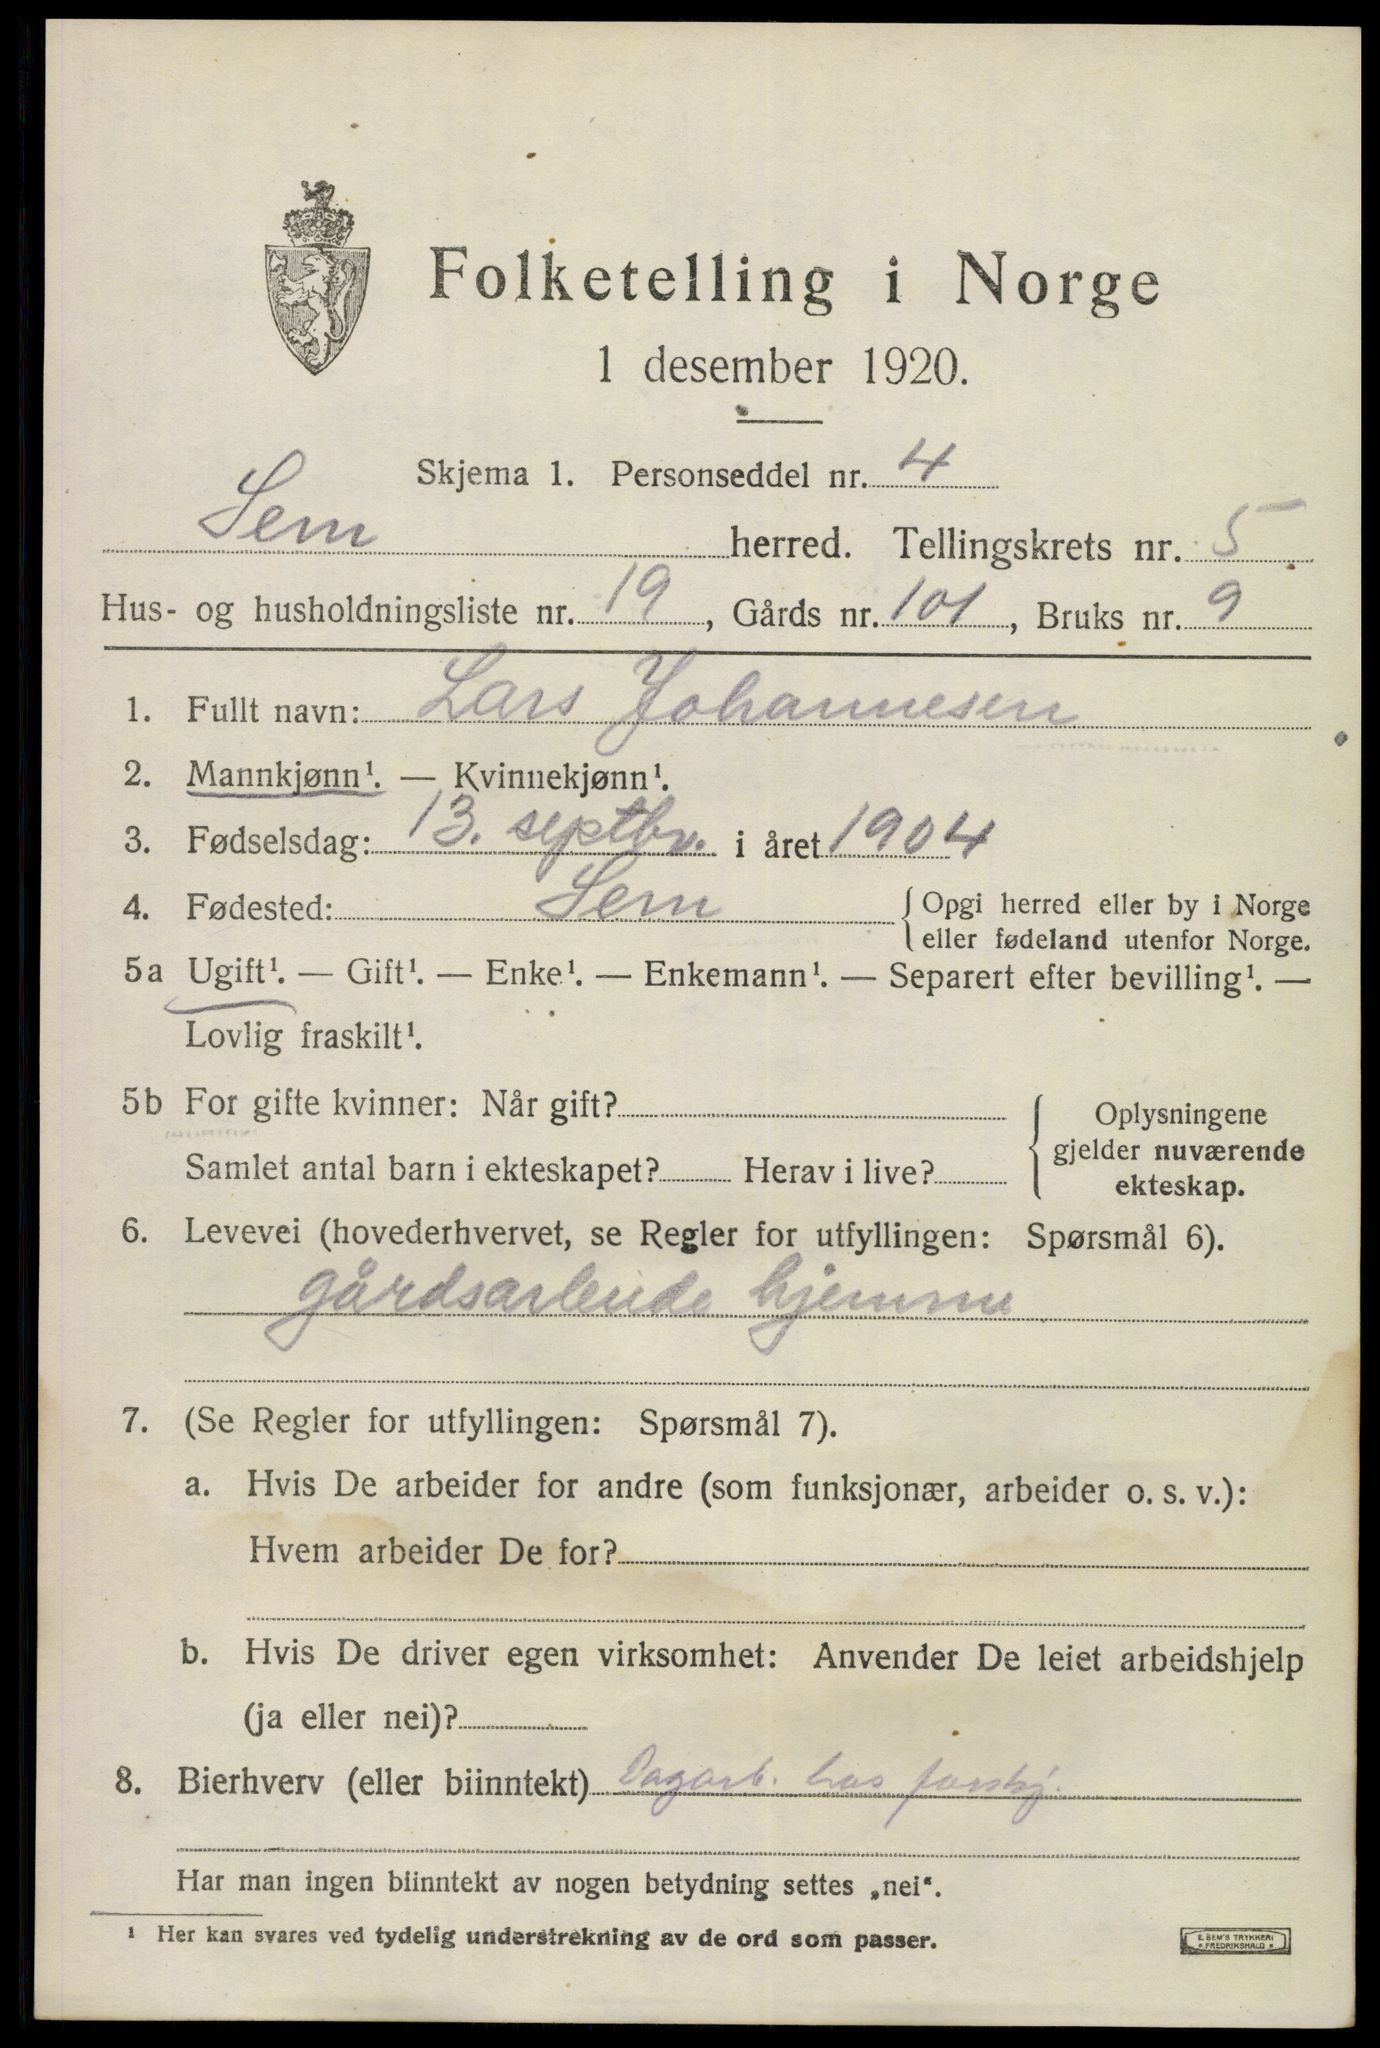 Folketelling i Norge
1 desember 1920.
Skjema 1. Personseddel nr. 4
Sem herred. Tellingskrets nr. 5
Hus- og husholdningsliste nr. 19, Gårds nr. 101, Bruks nr. 9
1. Fullt navn: Lars Johannesen
2. Mannkjønn¹. — Kvinnekjønn¹.
3. Fødselsdag: 13. septbr. i året 1904
4. Fødested: Sem { Opgi herred eller by i Norge
eller fødeland utenfor Norge.
5a Ugift¹. — Gift¹. — Enke¹. — Enkemann¹. — Separert efter bevilling¹. —
Lovlig fraskilt¹.
5b For gifte kvinner: Når gift?
Samlet antal barn i ekteskapet? Herav i live?
Oplysningene
gjelder nuværende
ekteskap.
6. Levevei (hovederhvervet, se Regler for utfyllingen: Spørsmål 6).
gårdsarbeide hjemme
7. (Se Regler for utfyllingen: Spørsmål 7).
a. Hvis De arbeider for andre (som funksjonær, arbeider o. s. v.):
Hvem arbeider De for?
b. Hvis De driver egen virksomhet: Anvender De leiet arbeidshjelp
(ja eller nei)?
8. Bierhverv (eller biinntekt) Dagarb. hos forskj.
Har man ingen biinntekt av nogen betydning settes „nei“.
¹ Her kan svares ved tydelig understrekning av de ord som passer.
E. SEM'S TRYKKERI
FREDRIKSHALD